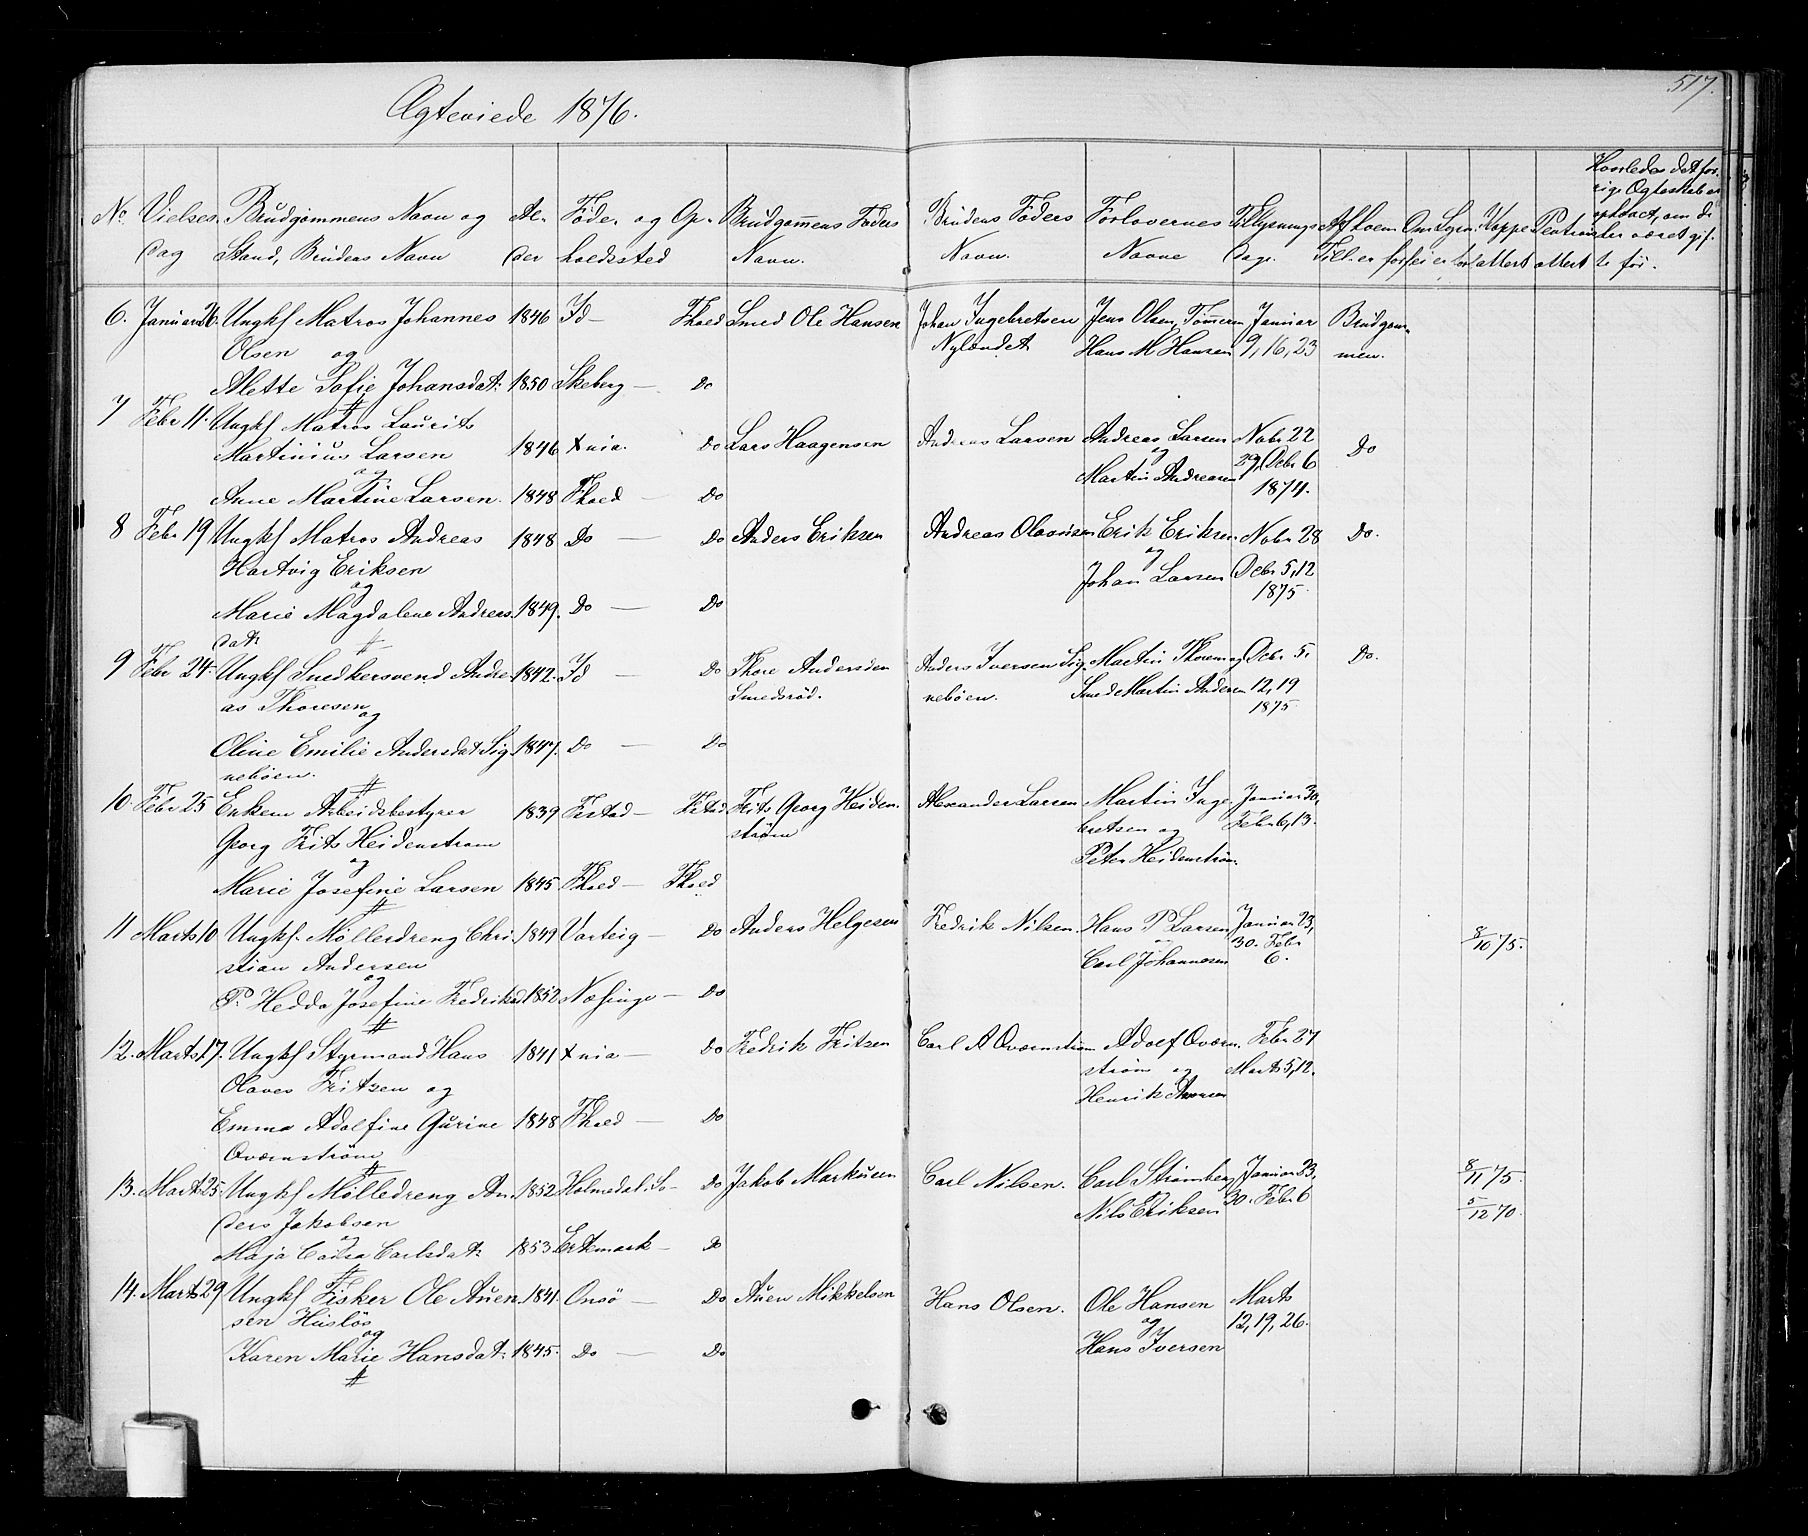 517.
Ægteviede 1876.
No. Vielses dag | Brudgommens Navn og Stand, Brudens Navn | Alder | Føde- og Opholdssted | Brudgommens Faders Navn. | Brudens Faders Navn. | Forlovernes Navne | Tillysnings Dage. | Af hvem Till. er forl. | Om Lysn. | Koppe attest | Hvorledes det forrige Ægteskab er ophævet, om de har været gifte før.
6. Januar 26. Ungkf Matros Johannes 1846 Id — Fhald Smed Ole Hansen Johan Ingebretsen Jens Olsen, Januar Brudgom-
Olsen og Nylændet Hans M Hansen 9, 16, 23 men.
Alette Sofie Johansdat. 1850 Skeberg — Do
7 Febr 11. Ungkf Matros Laurits
Martinius Larsen 1846 Xnia. Do Lars Haagensen Andreas Larsen Andreas Larsen Nobr 22 Do
og og 29, Debr 6
Anne Martine Larsen. 1848 Fhald — Do Martin Andreasen 1874.
8 Febr 19 Ungkf Matros Andreas 1848 Do — Do Anders Eriksen Andreas Olavesen Erik Eriksen Nobr 28 Do.
Hartvig Eriksen og Debr 5, 12
og Johan Larsen 1875.
Marie Magdalene Andreas- 1849. Do — Do
dat.
9 Febr 24. Ungkf Snedkersvend Andre- 1842. Id — Do Thore Andersden Anders Iversen Sig- Martin Thoresen og Debr 5. Do.
as Thoresen Smedsrød. nebøen. Smed Martin Andersen 12, 19
og 1875.
Oline Emilie Andersdat Sig- 1847. Do — Do
nebøen.
10. Febr 25 Enkem Arbeidsbestyrer 1839 Frstad — Frstad Frits Georg Heiden- Alexander Larsen Martin Inge- Januar 30,
Georg Frits Heidenstrøm strøm bretsen og Febr 6, 13.
og Peter Heidenstrøm.
Marie Josefine Larsen 1845 Fhald — Fhald
11 Marts 10 Ungkf. Møllerdreng Chri- 1849 Varteig — Do Anders Helgesen Fredrik Nilsen. Hans P Larsen Januar 23, 8/10 75.
stian Andersen og 30. Febr
og Carl Johannesen 6.
P. Hedda Josefine Fredriksd 1852 Næsinge — Do
12. Marts 17. Ungkf Styrmand Hans 1841 Xnia — Do Fredrik Fritzen Carl A Qværnstrøm Adolf Qværn- Febr 27
Olaves Fritzen og strøm og Marts 5, 12.
Emma Adolfine Gurine 1848 Fhald — Do Henrik
Qværnstrøm
13. Marts 25. Ungkf Mølledreng An- 1852 Holmedal. Do Jakob Markusen Carl Nilsen. Carl Strømberg Januar 23, 8/11 75.
ders Jakobsen Nils Eriksen 30. Febr 6 5/12 70.
og
Maja Cajsa Carlsdat. 1853 Edtemark — Do
14. Marts 29 Ungkf Fisker Ole Auen- 1841. Onsø — Do Auen Mikkelsen Hans Olsen. Ole Hansen Marts
sen Husløs og 12, 19, 26.
og Hans Iversen
Karen Marie Hansdat. 1845. Do — Do